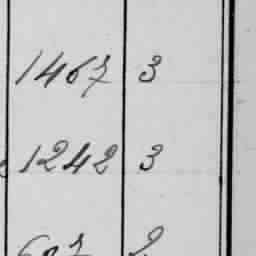 1467 3
1242 3